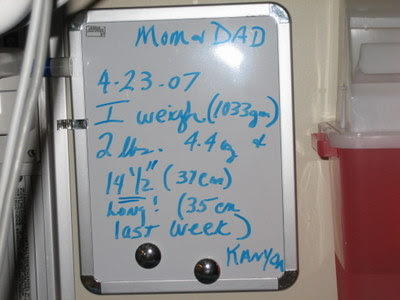 Mom & DAD
4-23-07
I weigh (1033gm)
2 lbs. 4.4 oz &
14 1/2" (37cm)
Long! (35cm
last week)
KANYON